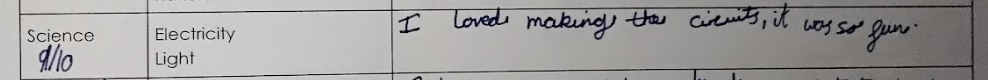 Science
9/10
Electricity
Light
I loved making the circuits, it was so fun.